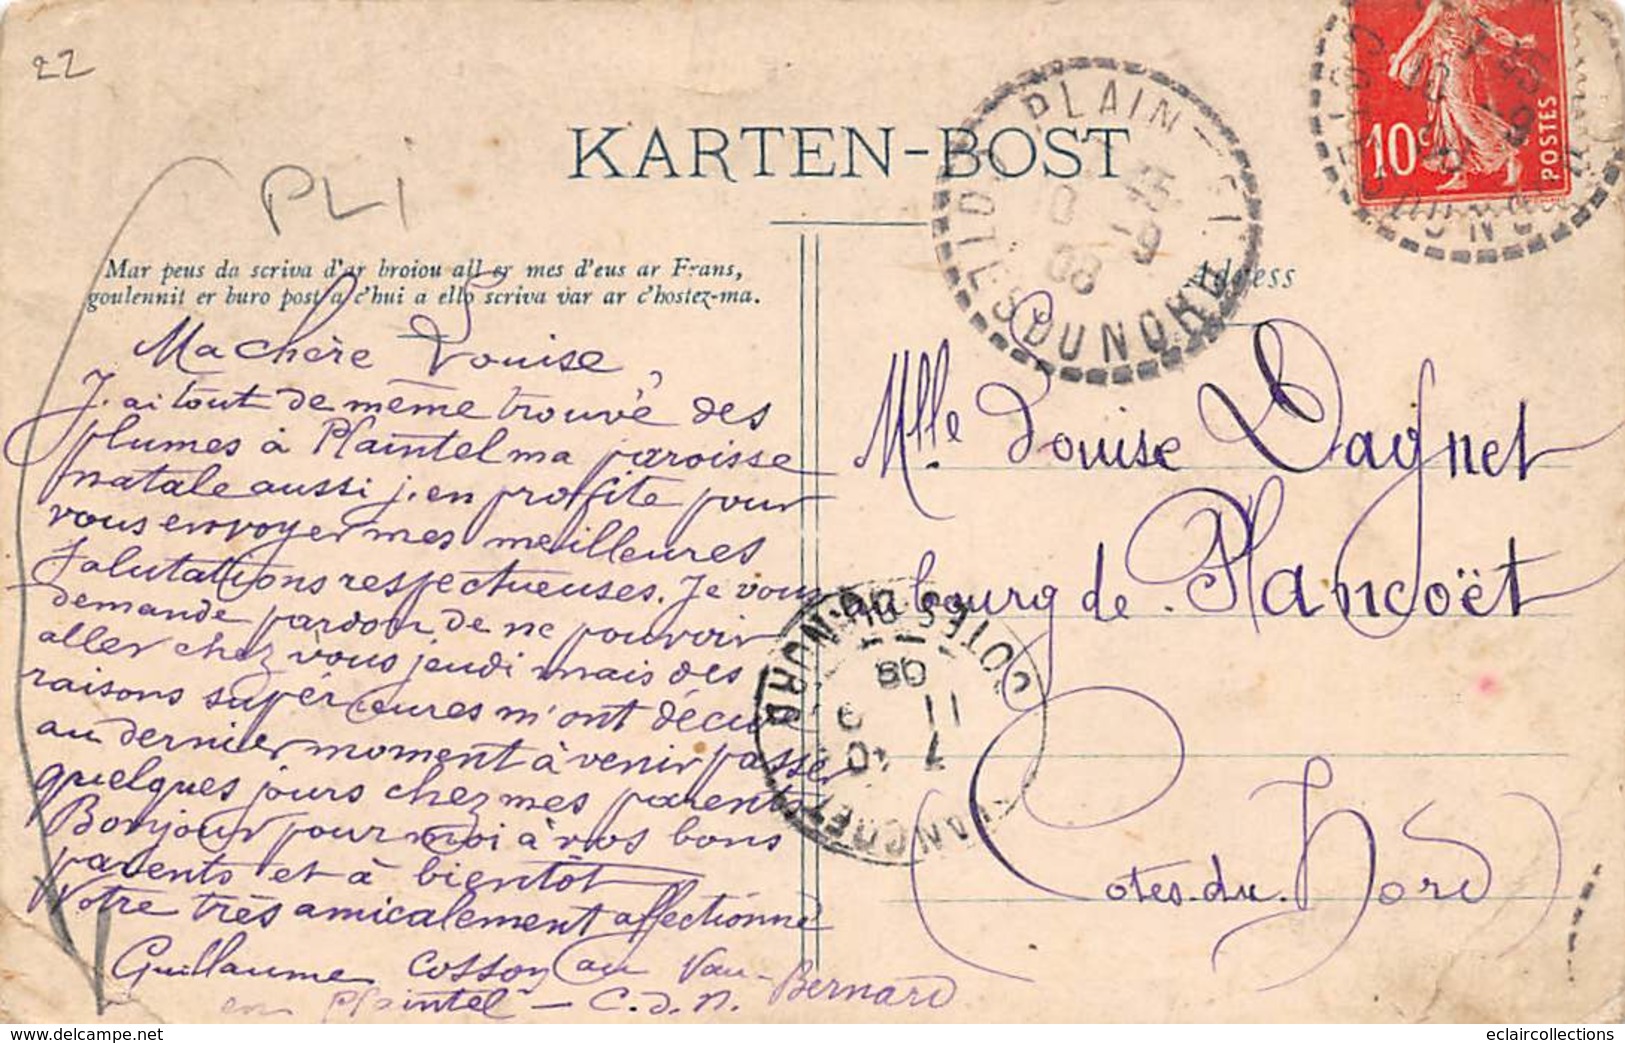 22
PLI
KARTEN-BOST
Mar peus da scriva d'ar broiou all er mes d'eus ar Frans,
goulennit er buro post a c'hui a ello scriva var ar c'hostez-ma.
Ma chère Louise,
J'ai tout de même trouvé des
plumes à Plaintel ma paroisse
natale aussi j'en profite pour
vous envoyer mes meilleures
salutations respectueuses. Je vous
demande pardon de ne pouvoir
aller chez vous jeudi mais des
raisons supérieures m'ont décu
au dernier moment à venir passer
quelques jours chez mes parents
Bonjour pour moi à vos bons
parents et à bientôt
Votre très amicalement affectionné
Guillaume Cosson au Vau-Bernard
en Plaintel — C.d.N.
PLAINTEL
COTES DU NORD
08
10c
POSTES
Address
Mlle Louise Dagnet
au bourg de Plancoët
Cotes-du-Nord
PLANCOET
COTES DU NORD
7 40
11 9
08
eclaircollections